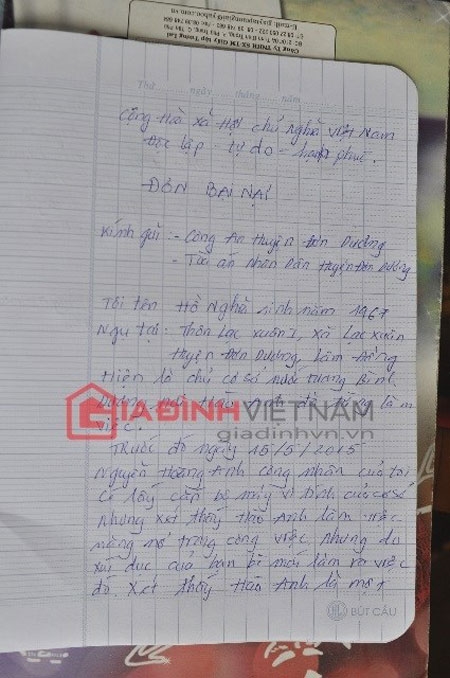 Thứ ngày tháng năm
Cộng Hòa xã Hội chủ nghĩa Việt Nam
Độc lập - tự do - hạnh phúc.
ĐƠN BÃI NẠI
Kính gửi: - Công An Huyện Đơn Dương
- Tòa án Nhân Dân Huyện Đơn Dương
Tôi tên Hồ Nghĩa sinh năm 1967
Ngụ tại: Thôn Lạc Xuân I, xã Lạc Xuân
Huyện Đơn Dương, Lâm Đồng
Hiện là chủ cơ sở nước tương Bình
Dương nơi Hào Anh đã từng làm
việc.
GIADINHVIETNAM
giadinhvn.vn
Trước đó ngày 15/5/2015
Nguyễn Hoàng Anh công nhân của tôi
có lấy cắp bộ máy vi tính của cơ sở
Nhưng xét thấy Hào Anh làm việc
năng nổ trong công việc nhưng do
xúi dục của bạn bè mới làm ra việc
đó. Xét thấy Hào Anh là một
BÚT CẦU